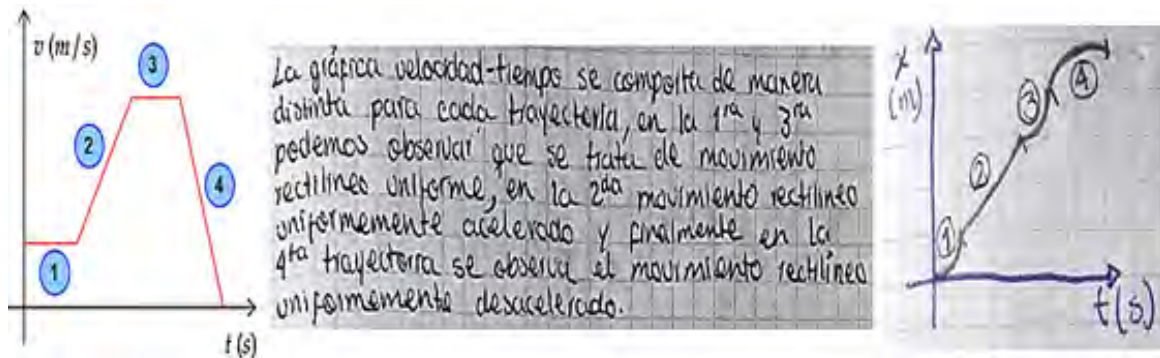 v (m/s)
3
2
4
1
t (s)
La gráfica velocidad-tiempo se comporta de manera
distinta para cada trayectoria, en la 1ra y 3ra
podemos observar que se trata de movimiento
rectilíneo uniforme, en la 2da movimiento rectilíneo
uniformemente acelerado y finalmente en la
4ta trayectoria se observa el movimiento rectilíneo
uniformemente desacelerado.
x
(m)
4
3
2
1
t(s)